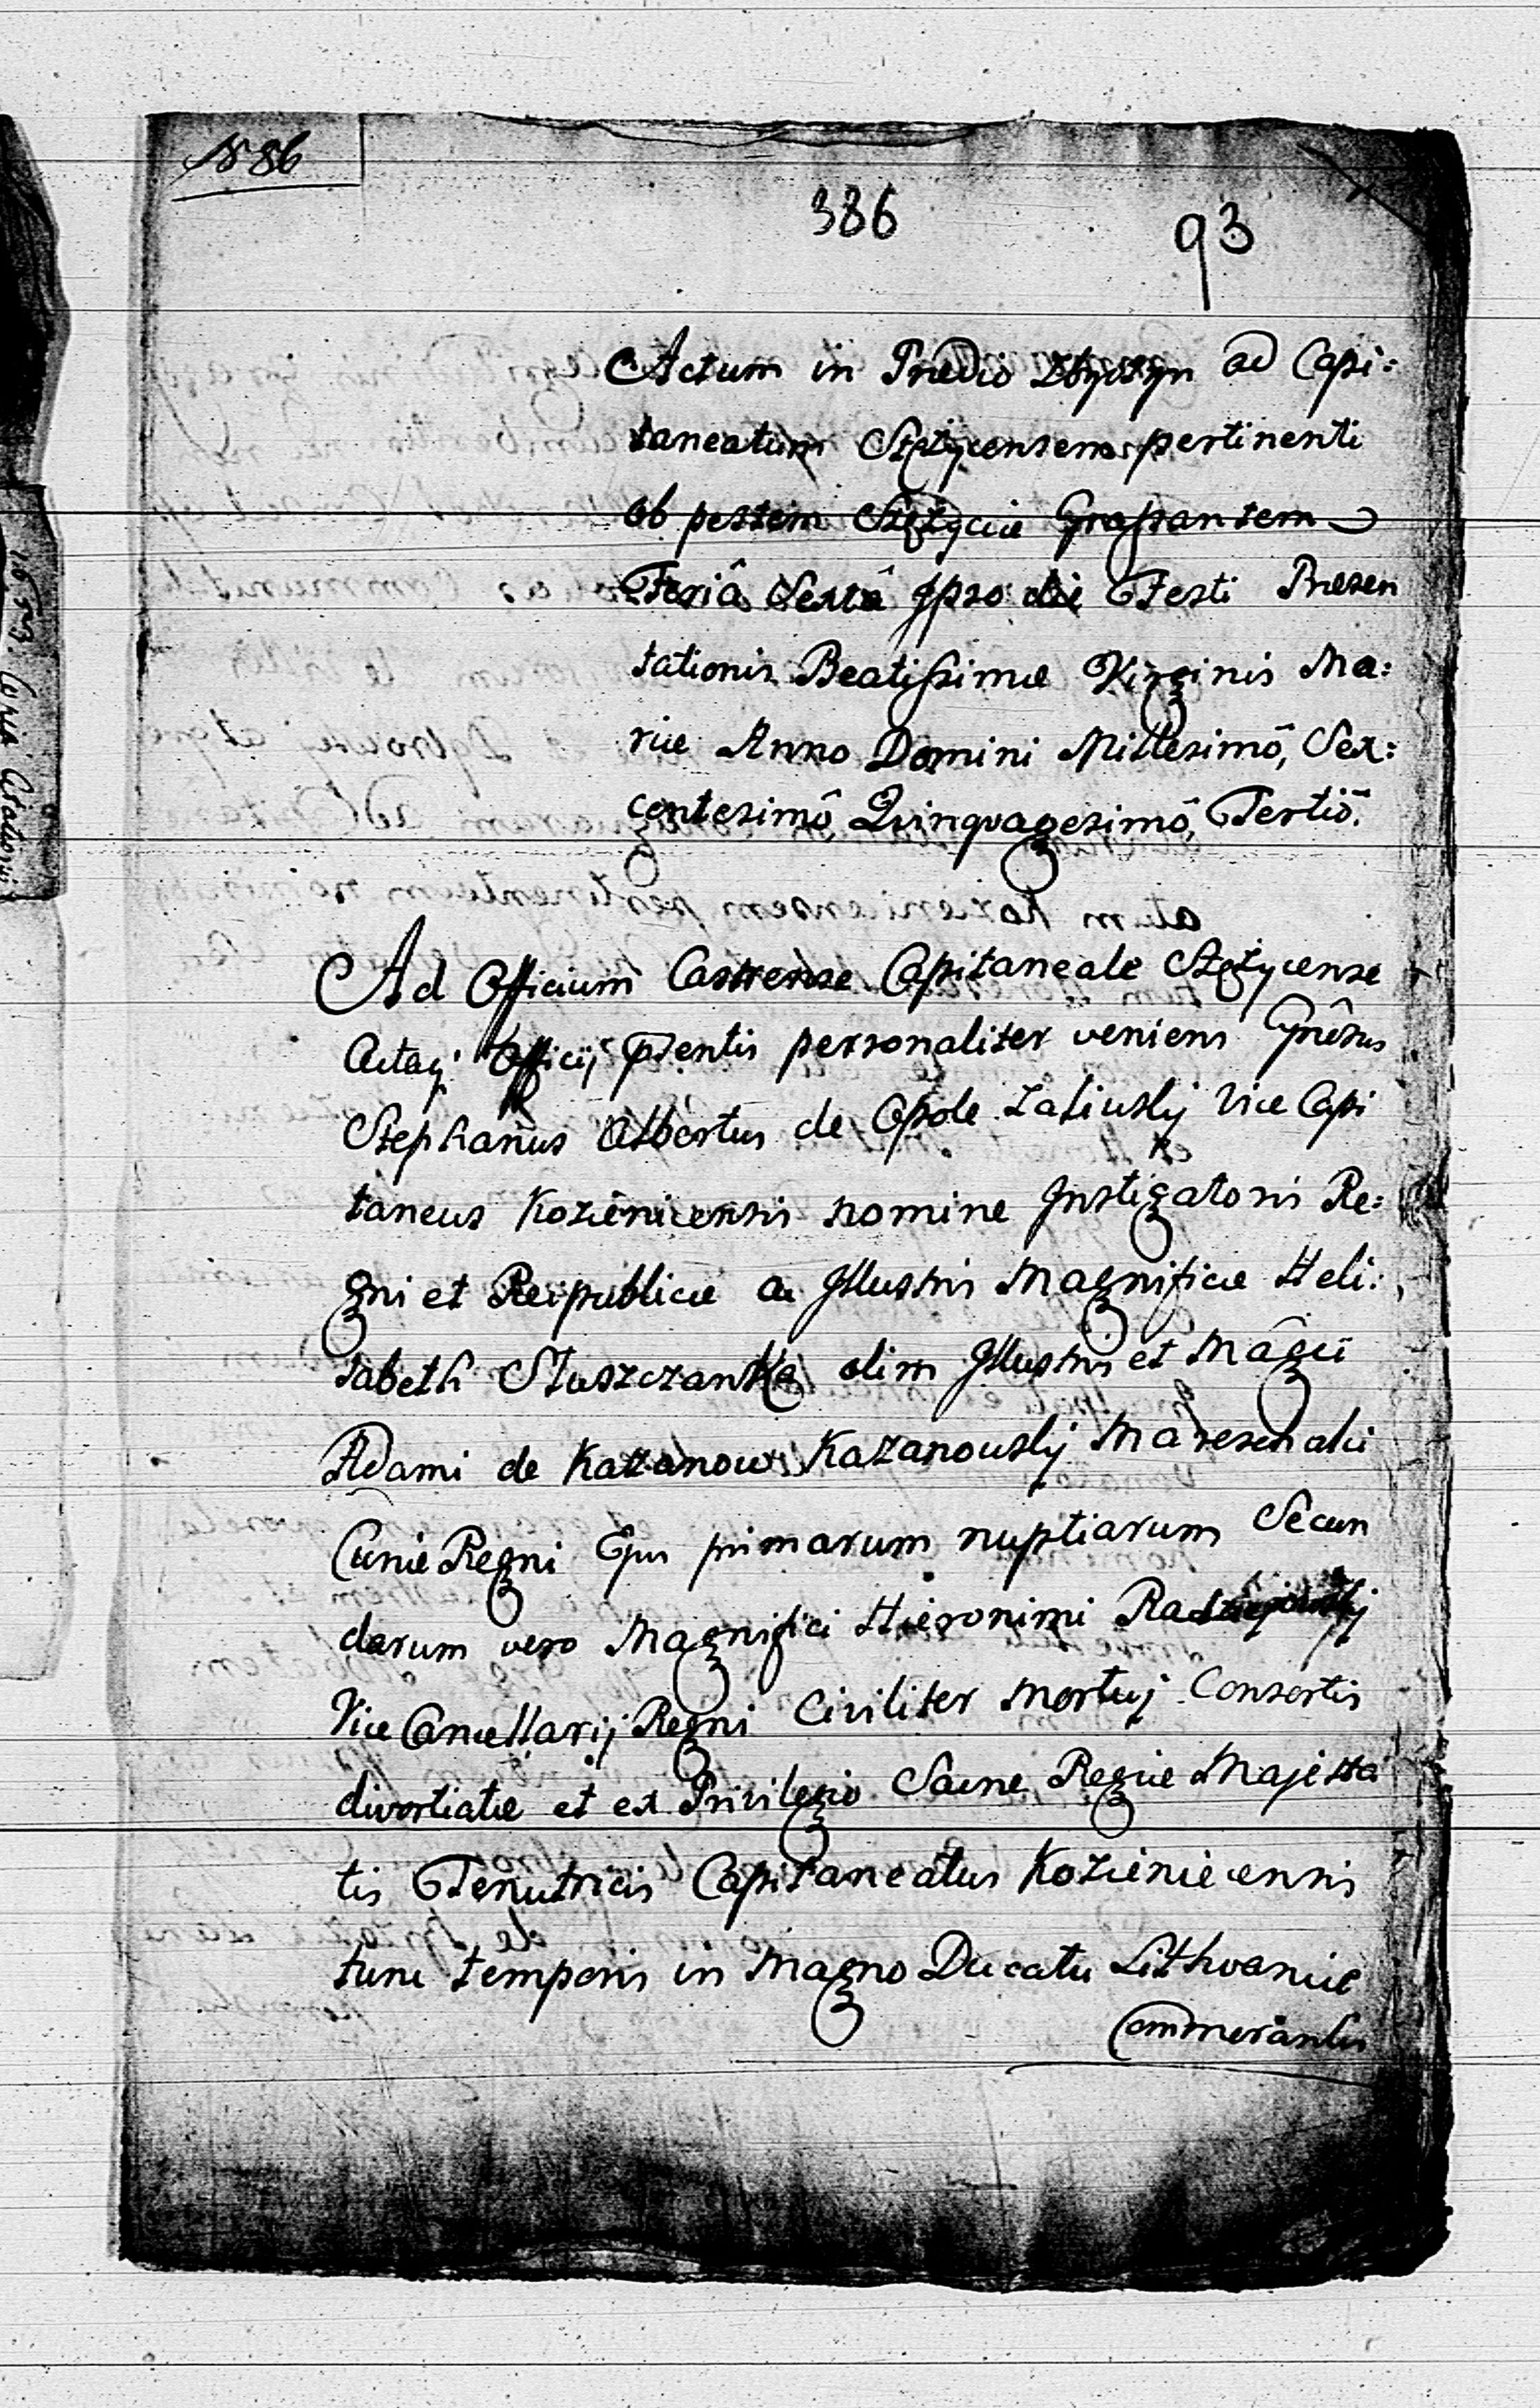 N 86
386
93
Actum in Prædio Zbyczyn ad Capi:
taneatum Stężycensem pertinenti
ob pestem Stężyciæ Grassantem
Feriâ Sextâ Ipso die Festi Præsen
tationis Beatissimæ Virginis Ma:
riæ Anno Domini Millesimô, Sex:
centesimô Quinquagesimô, Tertiô.
Ad Officium Castrense Capitaneale Stężycense
Actaq Officij pñentis personaliter veniens Gnôsus
Stephanus Albertus de Opole Zaliuskj Vice Capi
taneus Kozienicensis nomine Instigatoris Re:
gni et Reipublicæ ac Illustris Magnificæ Heli:
sabeth Słuszczanka olim Illustris et Mâgci
Adami de Kazanow Kazanouskj Mareschalci
Curiæ Regni Ejus primarum nuptiarum Secun
darum vero Magnifici Hieronimi Radziejouskj
Vice Cancellarij Regni Civiliter Mortuj Consortis
divortiatæ et ex Privilegio Sacræ Regiæ Majesta
tis Tenutricis Capitaneatus Kozieniecensis
tunc temporis in Magno Ducatu Lithvaniæ
Commerantis